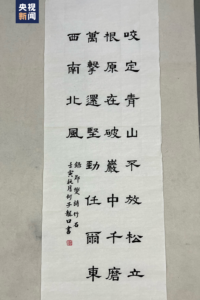 央视
新闻
咬定青山不放松立
根原在破巖中千磨
萬擊還堅勁任爾東
西南北風
錄鄭燮詩竹石
壬寅秋月
書